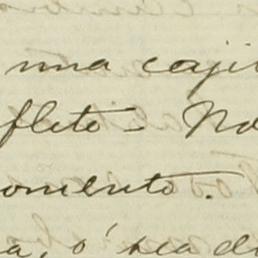 una caji
fleto - No
omento.
a, ó sea di